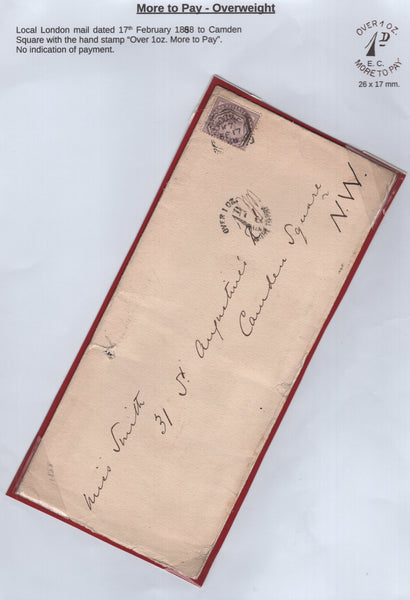 More to Pay - Overweight
Local London mail dated 17th February 1888 to Camden
Square with the hand stamp "Over 1oz. More to Pay".
No indication of payment.
OVER 1 OZ.
1D
E. C.
MORE TO PAY
26 x 17 mm.
OVER 1 OZ.
1D
MORE TO PAY
Miss Smith
31 St Augustine's Rd
Camden Square
N.W.